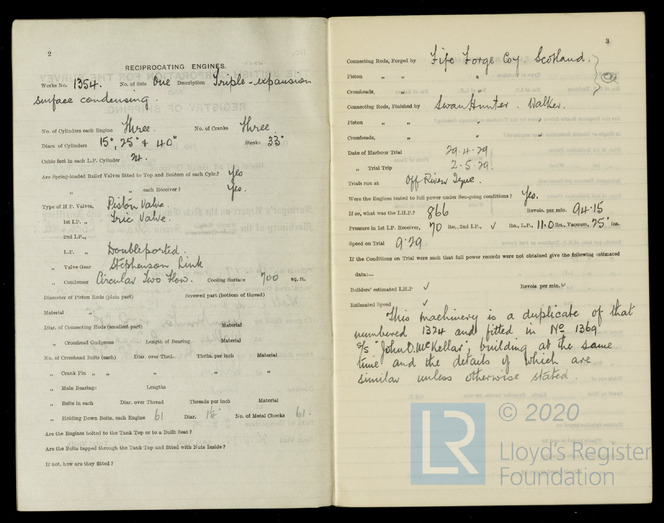 2
RECIPROCATING ENGINES.
Works No. 1354. No. of Sets One Description Triple-expansion
surface condensing.
No. of Cylinders each Engine Three No. of Cranks Three
Diars. of Cylinders 15", 25" & 40" Stroke 33"
Cubic feet in each L.P. Cylinder 24.
Are Spring-loaded Relief Valves fitted to Top and Bottom of each Cylr.? Yes
" " each Receiver? Yes.
Type of H.P. Valves, Piston Valve.
1st I.P. " Valve.
2nd I.P. "
L.P. " Doubleported.
" Valve Gear Stephenson Link
" Condenser Circular Two Flow. Cooling Surface 700 sq. ft.
Diameter of Piston Rods (plain part) Screwed part (bottom of thread)
Material "
Diar. of Connecting Rods (smallest part) Material
" Crosshead Gudgeons Length of Bearing Material
No. of Crosshead Bolts (each) Diar. over Thrd. Thrds. per inch Material
" Crank Pin " " " " "
" Main Bearings Lengths
" Bolts in each Diar. over Thread Threads per inch Material
" Holding Down Bolts, each Engine 61 Diar. No. of Metal Chocks 61.
Are the Engines bolted to the Tank Top or to a Built Seat?
Are the Bolts tapped through the Tank Top and fitted with Nuts Inside?
If not, how are they fitted?
3
Connecting Rods, Forged by Fife Forge Coy Scotland.
Piston " "
Crossheads, "
Connecting Rods, Finished by Swan Hunter. Walker.
Piston " "
Crossheads, "
Date of Harbour Trial 29.4.29
" Trial Trip 2-5-29.
Trials run at Off River Tyne.
Were the Engines tested to full power under Sea-going conditions? Yes.
If so, what was the I.H.P.? 866 Revols. per min. 94.15
Pressure in 1st I.P. Receiver, 70 lbs., 2nd I.P., ✓ lbs., L.P., 11.0 lbs., Vacuum, 25" ins.
Speed on Trial 9.29
If the Conditions on Trial were such that full power records were not obtained give the following estimated
data:—
Builders' estimated I.H.P. ✓ Revols. per min. ✓
Estimated Speed ✓
This machinery is a duplicate of that
numbered 1374 and fitted in No 1369
S/S "John O. McKellar", building at the same
time and the details of which are
similar unless otherwise stated.
© 2020
LR
Lloyd's Register
Foundation